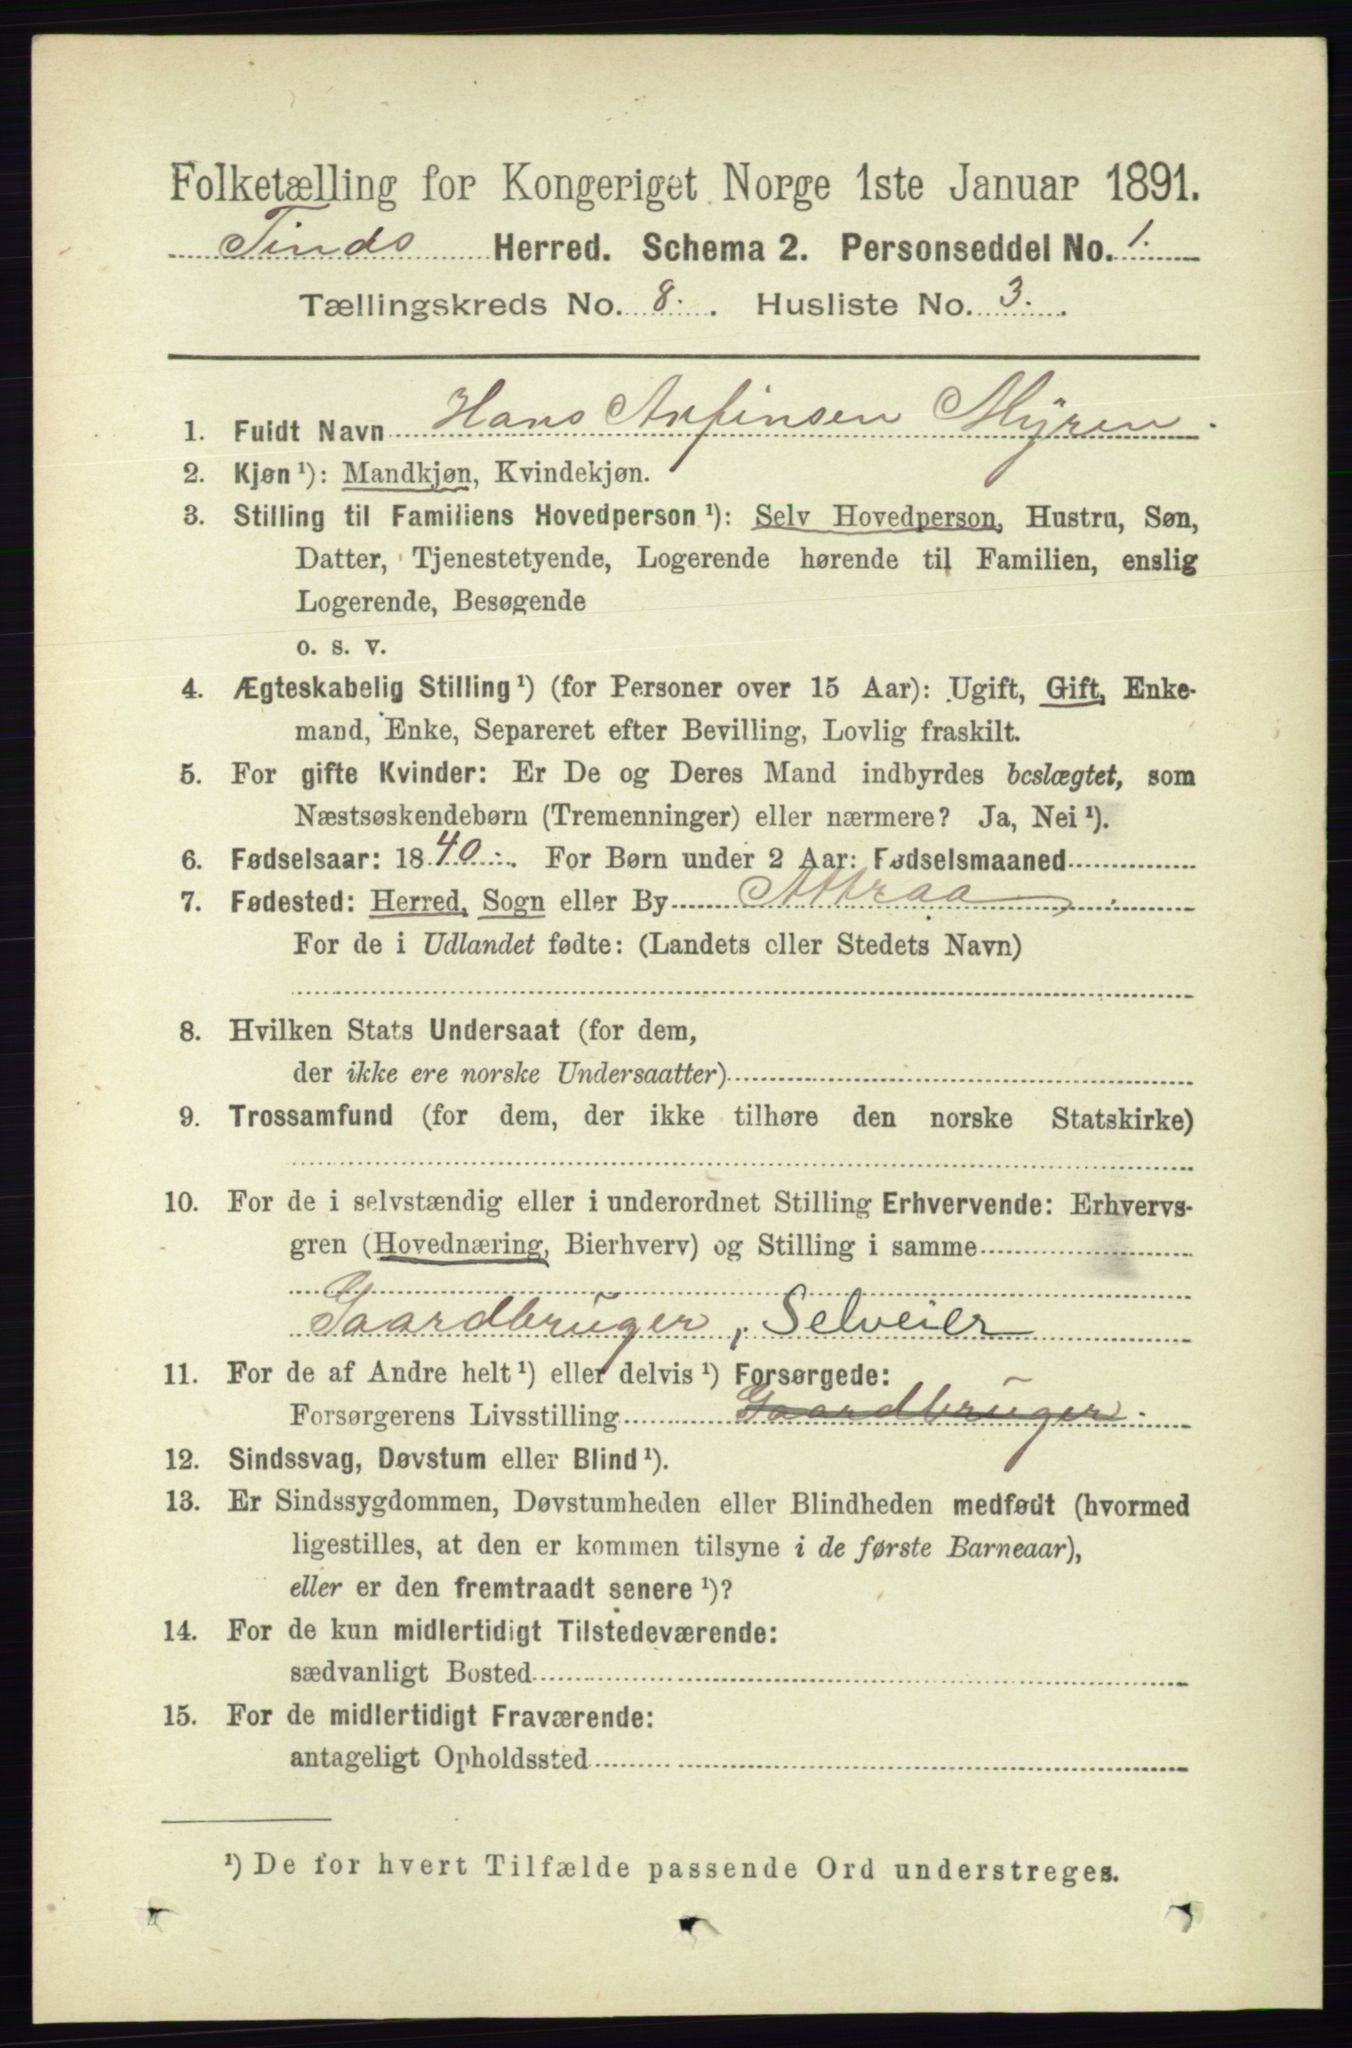 Folketælling for Kongeriget Norge 1ste Januar 1891.
Tinds Herred. Schema 2. Personseddel No. 1.
Tællingskreds No. 8. Husliste No. 3.
1. Fuldt Navn Hans Anfinsen Myren.
2. Kjøn ¹): Mandkjøn, Kvindekjøn.
3. Stilling til Familiens Hovedperson ¹): Selv Hovedperson, Hustru, Søn,
Datter, Tjenestetyende, Logerende hørende til Familien, enslig
Logerende, Besøgende
o. s. v.
4. Ægteskabelig Stilling ¹) (for Personer over 15 Aar): Ugift, Gift, Enke-
mand, Enke, Separeret efter Bevilling, Lovlig fraskilt.
5. For gifte Kvinder: Er De og Deres Mand indbyrdes beslægtet, som
Næstsøskendebørn (Tremenninger) eller nærmere? Ja, Nei ¹).
6. Fødselsaar: 1840. For Børn under 2 Aar: Fødselsmaaned
7. Fødested: Herred, Sogn eller By Attraa
For de i Udlandet fødte: (Landets eller Stedets Navn)
8. Hvilken Stats Undersaat (for dem,
der ikke ere norske Undersaatter)
9. Trossamfund (for dem, der ikke tilhøre den norske Statskirke)
10. For de i selvstændig eller i underordnet Stilling Erhvervende: Erhvervs-
gren (Hovednæring, Bierhverv) og Stilling i samme
Gaardbruger, Selveier
11. For de af Andre helt ¹) eller delvis ¹) Forsørgede:
Forsørgerens Livsstilling Gaardbruger.
12. Sindssvag, Døvstum eller Blind ¹).
13. Er Sindssygdommen, Døvstumheden eller Blindheden medfødt (hvormed
ligestilles, at den er kommen tilsyne i de første Barneaar),
eller er den fremtraadt senere ¹)?
14. For de kun midlertidigt Tilstedeværende:
sædvanligt Bosted
15. For de midlertidigt Fraværende:
antageligt Opholdssted
¹) De for hvert Tilfælde passende Ord understreges.